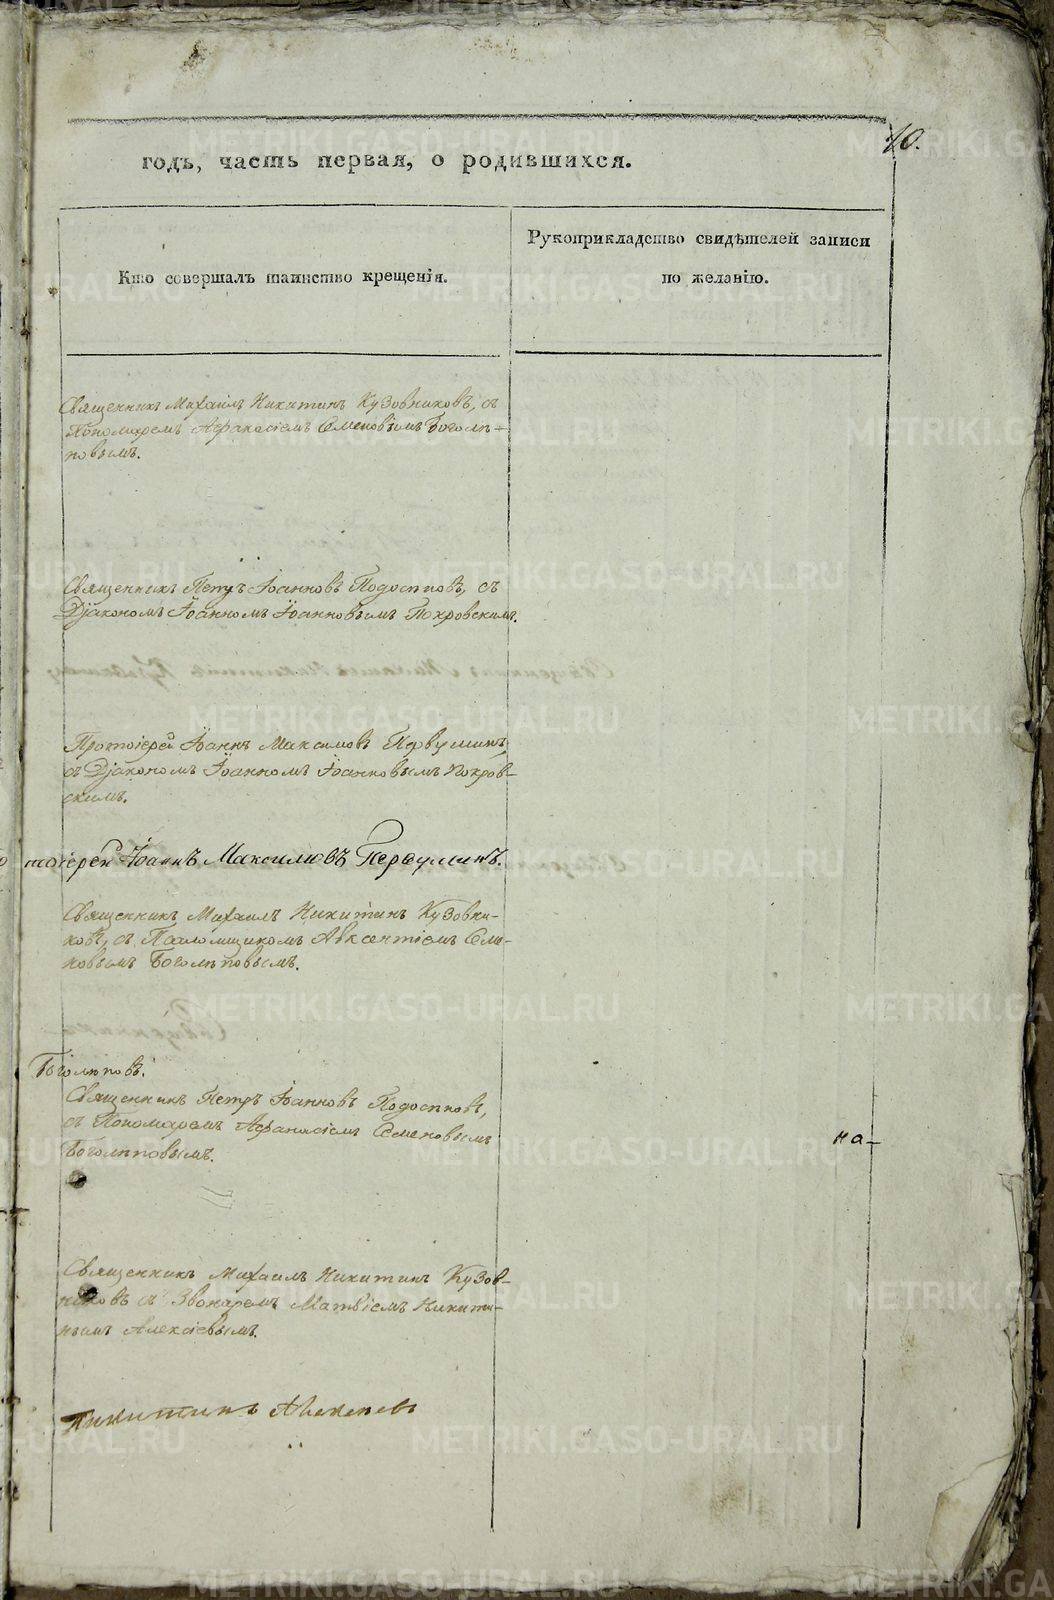 10.
годъ, часть первая, о родившихся.
Кто совершалъ таинство крещенія.
Рукоприкладство свидѣтелей записи
по желанію.
Священникъ Михаилъ Никитинъ Кузовниковъ, съ
Пономаремъ Афанасіемъ Семеновымъ Боголѣ-
повымъ.
Священникъ Петръ Іоанновъ Подосеновъ, съ
Діакономъ Іоанномъ Іоанновымъ Покровскимъ.
Протоіерей Іоаннъ Максимовъ Первушинъ,
съ Діакономъ Іоанномъ Іоанновымъ Покров-
скимъ.
тоіерей Іоаннъ Максимовъ Первушинъ.
Священникъ Михаилъ Никитинъ Кузовни-
ковъ, съ Псаломщикомъ Авксентіемъ Семе-
новымъ Боголѣповымъ.
Боголѣповъ.
Священникъ Петръ Іоанновъ Подосеновъ,
съ Пономаремъ Афанасіемъ Семеновымъ
Боголѣповымъ.
на-
Священникъ Михаилъ Никитинъ Кузов-
никовъ съ Звонаремъ Матвіемъ Никити-
нымъ Алексіевымъ.
Никитинъ Алексѣевъ
METRIKI.GASO-URAL.RU